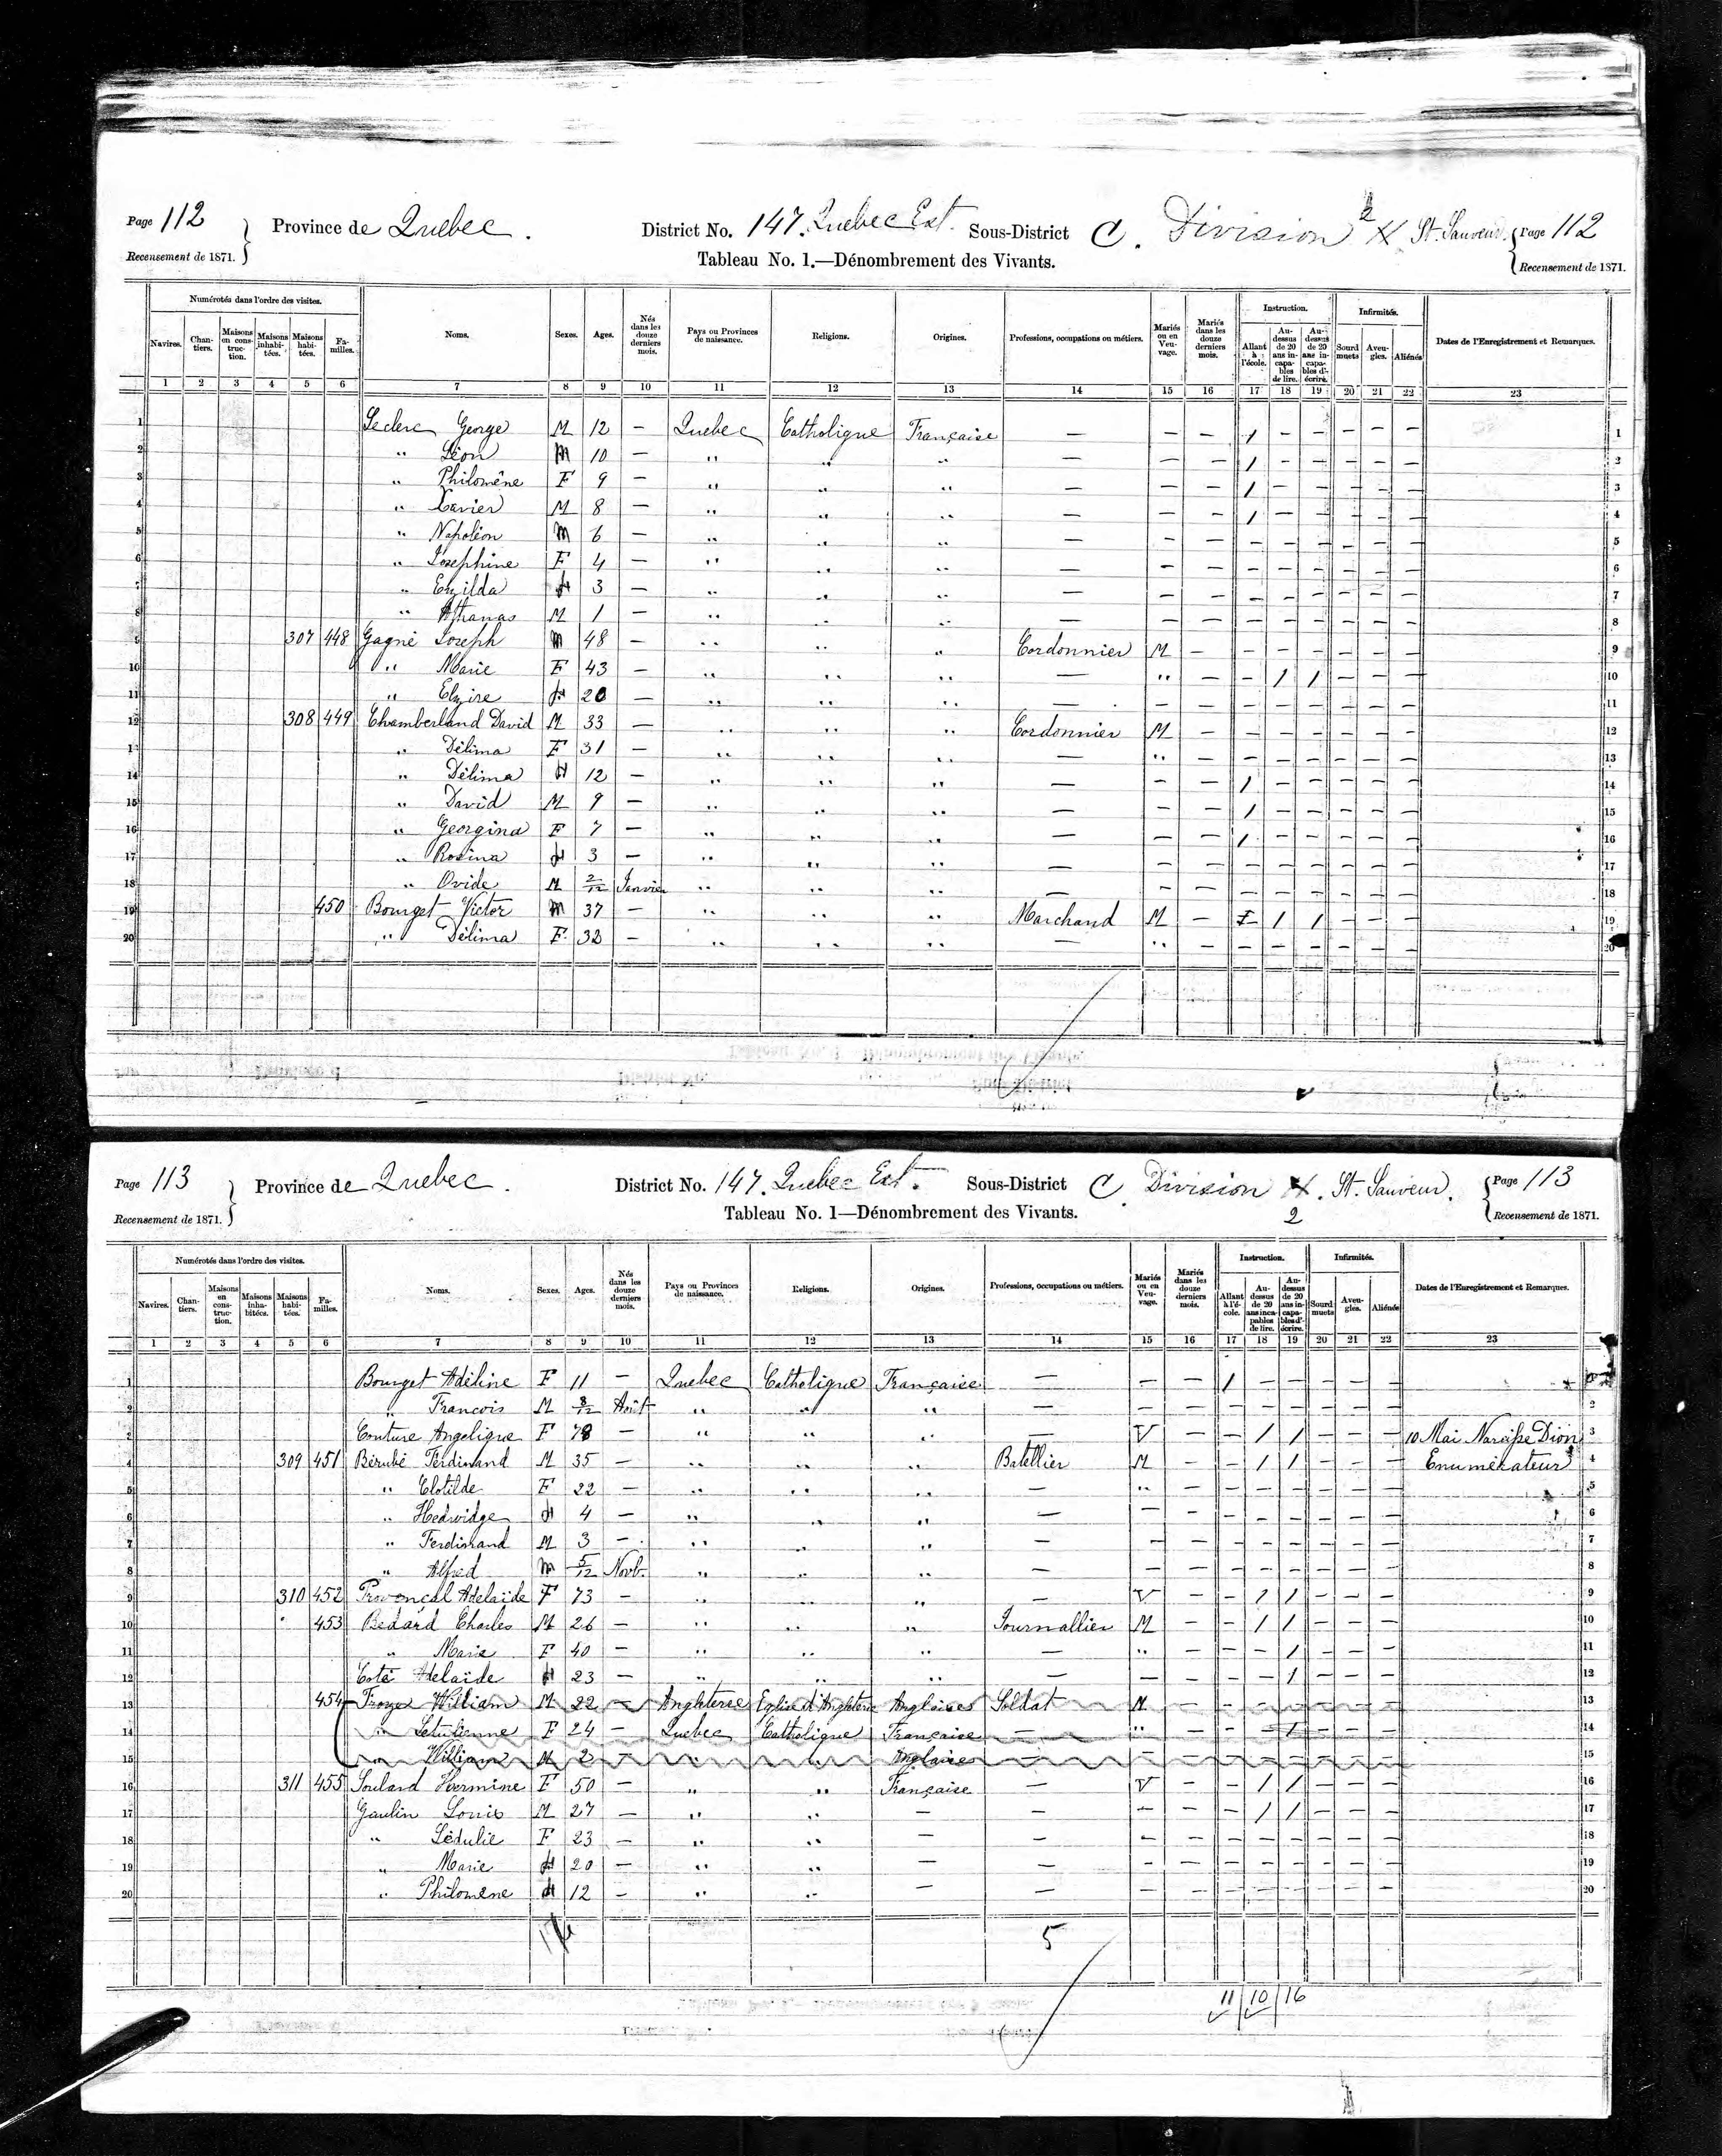 Page 112 Province de Quebec. District No. 147. Quebec Est. Sous-District C. Division 2 X St. Sauveur. Page 112
Recensement de 1871. Tableau No. 1.—Dénombrement des Vivants. Recensement de 1871.
Numérotés dans l'ordre des visites. Instruction. Infirmités.
Navires. Chantiers. Maisons en construction. Maisons inhabitées. Maisons habitées. Familles. Noms. Sexes. Ages. Nés dans les douze derniers mois. Pays ou Provinces de naissance. Religions. Origines. Professions, occupations ou métiers. Mariés ou en Veuvage. Mariés dans les douze derniers mois. Allant à l'école. Au-dessus de 20 ans incapables de lire. Au-dessus de 20 ans incapables d'écrire. Sourd muets Aveugles. Aliénés Dates de l'Enregistrement et Remarques.
1 2 3 4 5 6 7 8 9 10 11 12 13 14 15 16 17 18 19 20 21 22 23
1 Leclerc George M 12 — Quebec Catholique Française — — — 1 — — — — — 1
2 " Léon M 10 — " " " — — — 1 — — — — — 2
3 " Philomène F 9 — " " " — — — 1 — — — — — 3
4 " Xavier M 8 — " " " — — — 1 — — — — — 4
5 " Napoléon M 6 — " " " — — — — — — — — — 5
6 " Josephine F 4 — " " " — — — — — — — — — 6
7 " Ezilda F 3 — " " " — — — — — — — — — 7
8 " Athanas M 1 — " " " — — — — — — — — — 8
9 307 448 Gagné Joseph M 48 — " " " Cordonnier M — — — — — — — 9
10 " Marie F 43 — " " " — " — — 1 1 — — — 10
11 " Elzire F 20 — " " " — — — — — — — — — 11
12 308 449 Chamberland David M 33 — " " " Cordonnier M — — — — — — — 12
13 " Délima F 31 — " " " — " — — — — — — — 13
14 " Délima F 12 — " " " — — — 1 — — — — — 14
15 " David M 9 — " " " — — — 1 — — — — — 15
16 " Georgina F 7 — " " " — — — 1 — — — — — 16
17 " Rosina F 3 — " " " — — — — — — — — — 17
18 " Ovide M 2/12 Janvier " " " — — — — — — — — — 18
19 450 Bourget Victor M 37 — " " " Marchand M — — 1 1 — — — 19
20 " Délima F 32 — " " " — " — — — — — — — 20
Page 113 Province de Quebec. District No. 147. Quebec Est. Sous-District C. Division X. St. Sauveur. Page 113
Recensement de 1871. Tableau No. 1—Dénombrement des Vivants. 2 Recensement de 1871.
Numérotés dans l'ordre des visites. Instruction. Infirmités.
Navires. Chantiers. Maisons en construction. Maisons inhabitées. Maisons habitées. Familles. Noms. Sexes. Ages. Nés dans les douze derniers mois. Pays ou Provinces de naissance. Religions. Origines. Professions, occupations ou métiers. Mariés ou en Veuvage. Mariés dans les douze derniers mois. Allant à l'école. Au-dessus de 20 ans incapables de lire. Au-dessus de 20 ans incapables d'écrire. Sourd muets Aveugles. Aliénés Dates de l'Enregistrement et Remarques.
1 2 3 4 5 6 7 8 9 10 11 12 13 14 15 16 17 18 19 20 21 22 23
1 Bourget Adéline F 11 — Quebec Catholique Française — — — 1 — — — — —
2 " Francois M 8/12 Août " " " — — — — — — — — — 2
3 Couture Angelique F 78 — " " " — V — — 1 1 — — — 10 Mai Narcisse Dion 3
4 309 451 Bérubé Ferdinand M 35 — " " " Batellier M — — 1 1 — — — Enumérateur 4
5 " Clotilde F 22 — " " " — " — — — — — — — 5
6 " Hedwidge F 4 — " " " — — — — — — — — — 6
7 " Ferdinand M 3 — " " " — — — — — — — — — 7
8 " Alfred M 5/12 Novb. " " " — — — — — — — — — 8
9 310 452 Provençal Adelaïde F 73 — " " " — V — — 1 1 — — — 9
10 453 Bedard Charles M 26 — " " " Journallier M — — 1 1 — — — 10
11 " Marie F 40 — " " " — " — — — 1 — — — 11
12 Coté Adelaïde F 23 — " " " — — — — — 1 — — — 12
13 454 William M 22 — Anghterre Eglise d'Anghterre Anglaises Soldat M — — — — — — — 13
14 " F 24 — Quebec Catholique Française — " — — — 1 — — — 14
15 " William M 2 — " " Anglaise — — — — — — — — — 15
16 311 455 Soulard Hermine F 50 — " " Française — V — — 1 1 — — — 16
17 Gaulin Louis M 27 — " " — — — — — 1 1 — — — 17
18 " Sédulie F 23 — " " — — — — — — — — — — 18
19 " Marie F 20 — " " — — — — — — — — — — 19
20 " Philomène F 12 — " " — — — — — — — — — — 20
5
11 10 16